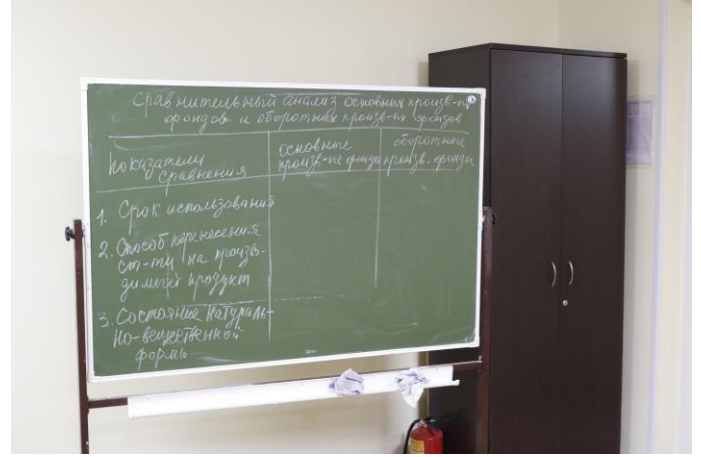 Сравнительный анализ основных произв-ых
фондов и оборотных произв-ых фондов
Показатели
сравнения
основные
произв-ые фонды
оборотные
произв. фонды
1. Срок использования
2. Способ перенесения
ст-ти на произво-
димый продукт
3. Состояние натураль-
но-вещественной
формы